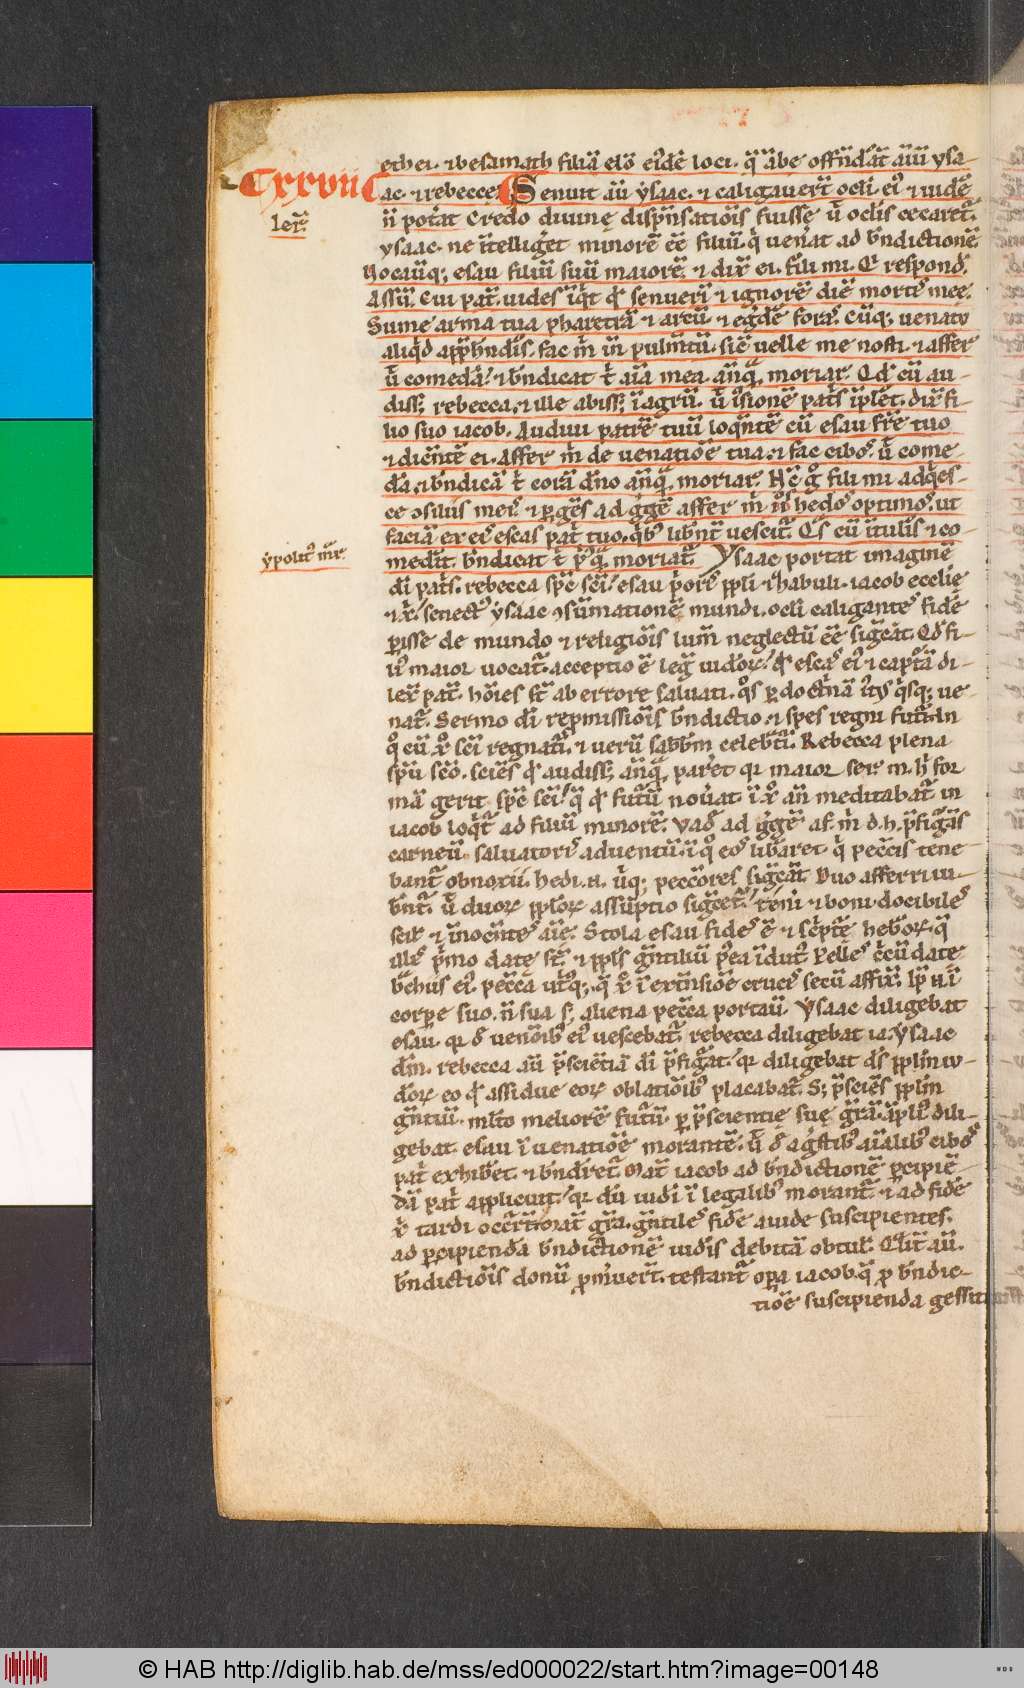 ethei. ⁊ besamath filiā elō eidē loci. q̄ ābe offēdāt aīm ysa-
Cxxvii ac. ⁊ rebecce Senuit aū ysaac. ⁊ caligauert̄ ocli ei⁹ ⁊ uidē
Ier̄. n̄ potāt Credo diuinę dispēnsatiōis fuisse ut̄ oclis cecaret̄.
ysaac. ne ītelligēt minorē ēē filiū. q̄ uenāt ad bn̄dictionē
Uocauitq; esau filiū suū maiorē. ⁊ dix̄ ei. fili mi. Et respond̄.
Assū. Cui pat̄. uides īq̄t qd̄ senueri ⁊ ignorē diē mortis mee.
Sume arma tua pharetrā ⁊ arcū. ⁊ egredē foras. Cūq; uenatu
aliqd̄ appēhn̄dis. fac m̄ īn pulmtū. sic̄ uelle me nosti. ⁊ affer
ut̄ comedā. ⁊ bn̄dicat t̄ aīa mea. anq̄ moriar. Qd̄ cū au-
diss; rebecca. ⁊ ille abiss; ī agrū. ut̄ iussionē pat̄s īplēt. dix̄ fi-
lio suo iacob. Audiui patrē tuū loq̄ntē cū esau fr̄e tuo
⁊ dicn̄tē ei. Affer m̄ de uenatiōe tua. ⁊ fac cibos. ut̄ come-
dā. ⁊ bn̄dicā t̄ corā dn̄o anq̄ moriar. Nc̄ g̊ fili mi adq̄es-
ce ɔsiliis meis. ⁊ p̱gēs ad gregē affer m̄ duos hedos optimos. ut
faciā ex eis escas pat̄ tuo. qb⁹ libn̄t̄ uescit̄. Qs cū ītulis ⁊ co-
ypolit⁹ mr̄. medīt. bn̄dicat t̄ p̄usq̄ moriat̄. Ysaac portat imaginē
dī pat̄s. rebecca sp̄c sc̄i. esau p̄oris ppli ⁊ diabuli. iacob ecclīe
⁊ x̄. senect⁹ ysaac ɔsūmationē mundi. ocli caligantes fidē
p̱isse de mundo ⁊ religiōis lum̄ neglectū ēē sigc̄āt. Qd̄ fi-
li⁹ maior uocat̄. acceptio ē leḡ iudōꝝ. qd̄ escas ei⁹ ⁊ captā di-
lex̄ pat̄. hōies st̄ ab errore saluati. qs p̱ doctnā iust⁹ qsq; ue-
nat̄. Sermo dī repmissiōis bn̄dictio. ⁊ spes regni futī. in
q̊ cū x̊ sc̄i regnat̄i. ⁊ uerū sabbm̄ celebt̄i. Rebecca plena
sp̄u sc̄o. sciēs qd̄ audiss; anq̄ parēt qr maior ser. m. h for
mā gerit sp̄c sc̄i. q̄ qd̄ futū nouāt ī x̊ an̄ meditabat̄ in
iacob loqt̄ ad filiū minorē. Vad̄ ad gregē af. m̄ d. h. p̄figās
carneū saluatoris aduentū. ī q̊ eos libaret q̄ pecc̄is tene-
bant̄ obnoxii. hedi .n. ubiq; pecc̄ores sigc̄āt Duo afferri iu-
bn̄t̄. ut̄ duoꝝ pploꝝ assūptio sigc̄et̄. Teni ⁊ boni. docibiles
scil̄ ⁊ īnocn̄tes aīe. Stola esau fides ē ⁊ sc̄pte hebōꝝ. q̄
illis p̄mo date st̄. ⁊ pplis gn̄tiliū p̄ea īduti. Pelles circūdate
bchiis ei⁹ pecc̄a utiq;. q̄ x̊ ī extn̄siōe crucis secū affix̄. Ip̄e n. ī
corpe suo. n̄ sua s; aliena pecc̄a portaū. Ysaac diligebat
esau. qr d̄ uenōib⁹ ei⁹ uescebat̄. rebecca diligebat ia. ysaac
dm̄. rebecca aū p̄sciētiā dī p̄figāt. qr diligebat ds̄ pplm̄ iu-
dōꝝ eo qd̄ assidue eoꝝ oblatiōib⁹ placabat̄. S; p̄sciēs pplm̄
gn̄tiū. mlto meliorē futū. p̱ p̄scientie sue grām. ipm̄ dili-
gebat. esau ī uenatiōe morantē. ut̄ d̄ agstib⁹ aīalib⁹ cibos
pat̄ exhibēt. ⁊ bn̄dret̄. Mat̄ iacob ad bn̄dictionē p̱cipiē-
dā pat̄ applicuit. qr dū iudī ī legalib⁹ morant̄ ⁊ ad fidē
x̄ tardi occrrūt grā. gn̄tiles fidē auide suscipientes.
ad p̱cipienda bn̄dictionē iudis debitā obtulr̄. Clit̄ aū.
bn̄dictiōis donū pmuert̄. testant̄ opa iacob. q̄ p bn̄dic-
tiōe suscipienda gessit
© HAB http://diglib.hab.de/mss/ed000022/start.htm?image=00148